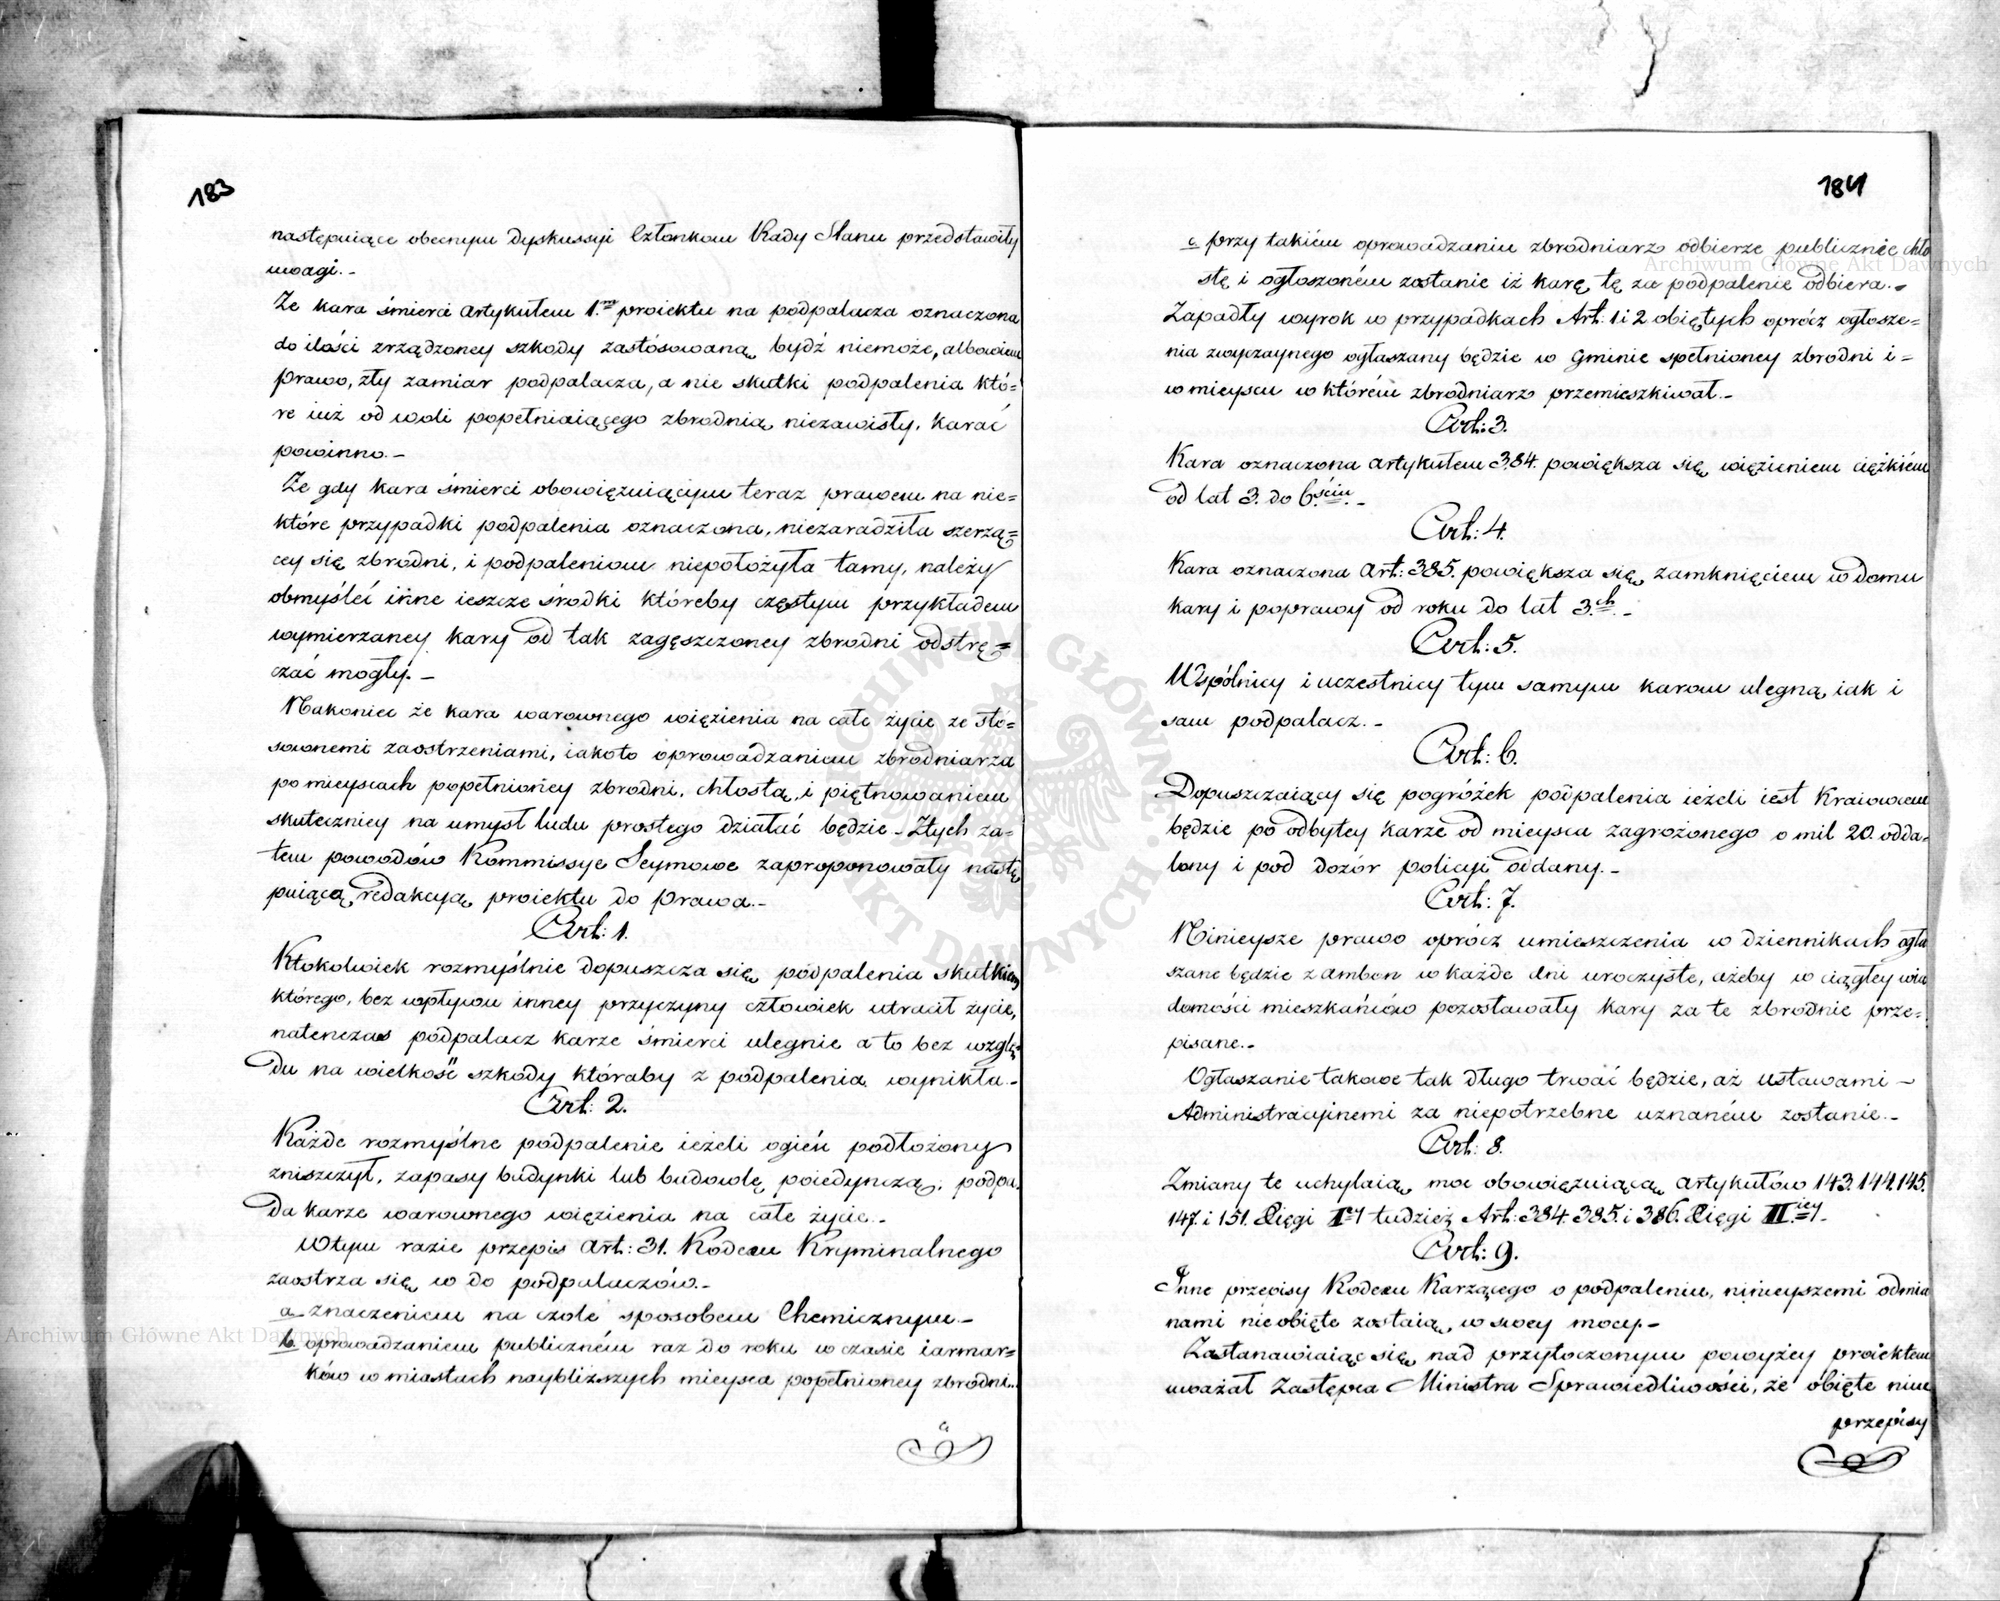 183
następuiące obecnym dyskussyi Członkom Rady Stanu przedstawiły
uwagi. -
Że kara śmierci artykułem 1.m proiektu na podpalacza oznaczona
do ilości zrządzoney szkody zastósowaną bydź niemoże, albowiem
prawo, zły zamiar podpalacza, a nie skutki podpalenia któ=
re iuż od woli popełniaiącego zbrodnią niezawisły, karać
powinno. -
Że gdy kara śmierci obowięzuiącym teraz prawem na nie=
które przypadki podpalenia oznaczona, niezaradziła szerzą=
cey się zbrodni, i podpaleniom niepołożyła tamy, należy
obmyśleć inne ieszcze środki któreby częstym przykładem
wymierzaney kary od tak zagęszczoney zbrodni odstrę=
czać mogły. -
Nakoniec że kara warownego więzienia na całe życie ze stó=
sownemi zaostrzeniami, iakoto oprowadzaniem zbrodniarza
po mieyscach popełnioney zbrodni, chłostą, i piętnowaniem
skuteczniey na umysł ludu prostego działać będzie - Ztych za=
tem powodów Kommissye Seymowe zaproponowały nastę
puiącą redakcyą proiektu do prawa. -
Art: 1.
Ktokolwiek rozmyślnie dopuszcza się podpalenia skutkiem
którego, bez wpływu inney przyczyny człowiek utracił życie,
natenczas podpalacz karze śmierci ulegnie a to bez wzglę
du na wielkość szkody któraby z podpalenia wynikła. -
Art: 2.
Każde rozmyślne podpalenie ieżeli ogień podłożony
zniszczył, zapasy budynki lub budowlę poiedynczą, podpa
da karze warownego więzienia na całe życie. -
Wtym razie przepis Art: 31. Kodexu Kryminalnego
zaostrza się w do podpalaczów. -
a znaczeniem na czole sposobem Chemicznym -
b. oprowadzaniem publiczném raz do roku w czasie iarmar=
ków w miastach naybliższych mieysca popełnioney zbrodni..
c
184
c przy takiém oprowadzaniu zbrodniarz odbierze publicznie chło
stę i ogłoszoném zostanie iż karę tę za podpalenie odbiera. -
Zapadły wyrok w przypadkach Art: 1 i 2 obiętych oprócz ogłosze=
nia zwyczaynego ogłaszany będzie w gminie spełnioney zbrodni i =
w mieyscu w którém zbrodniarz przemieszkiwał. -
Art: 3.
Kara oznaczona artykułem 384. powiększa się więzieniem ciężkiém
od lat 3. do 6.ściu. -
Art: 4.
Kara oznaczona Art: 385. powiększa się zamknięciem w domu
kary i poprawy od roku do lat 3.ch. -
Art: 5.
Wspólnicy i uczestnicy tym samym karom ulegną iak i
sam podpalacz. -
Art: 6.
Dopuszczaiący się pogróżek podpalenia ieżeli iest Kraiowcem
będzie po odbytey karze od mieysca zagrożonego o mil 20. odda=
lony i pod dozór policyi oddany. -
Art: 7.
Ninieysze prawo oprócz umieszczenia w dziennikach ogła
szane będzie z ambon w każde dni uroczyste, ażeby w ciągłey wia
domości mieszkańców pozostawały kary za te zbrodnie prze=
pisane. -
Ogłaszanie takowe tak długo trwać będzie, aż ustawami -
Administracyinemi za niepotrzebne uznaném zostanie. -
Art: 8.
Zmiany te uchylaią moc obowięzuiącą artykułów 143. 144. 145.
147. i 151. Xięgi I.ey tudzież Art: 384. 385. i 386. Xięgi II.iey. -
Art: 9.
Inne przepisy Kodexu Karzącego o podpaleniu, ninieyszemi odmia
nami nieobięte zostaią, w swey mocy. -
Zastanawiaiąc się nad przytoczonym powyżey proiektem
uważał Zastępca Ministra Sprawiedliwości, że obięte nim
przepisy
Archiwum Główne Akt Dawnych
Archiwum Główne Akt Dawnych
ARCHIWUM GŁÓWNE AKT DAWNYCH